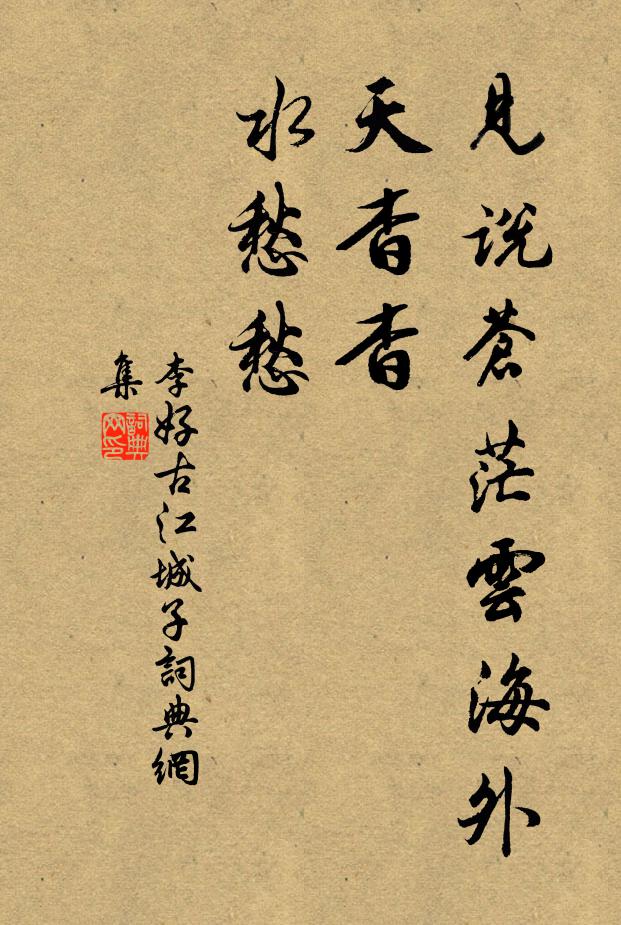 見説蒼茫雲海外
天杳杳
水愁愁
李好古江城子詞典網
集
詞典
网印